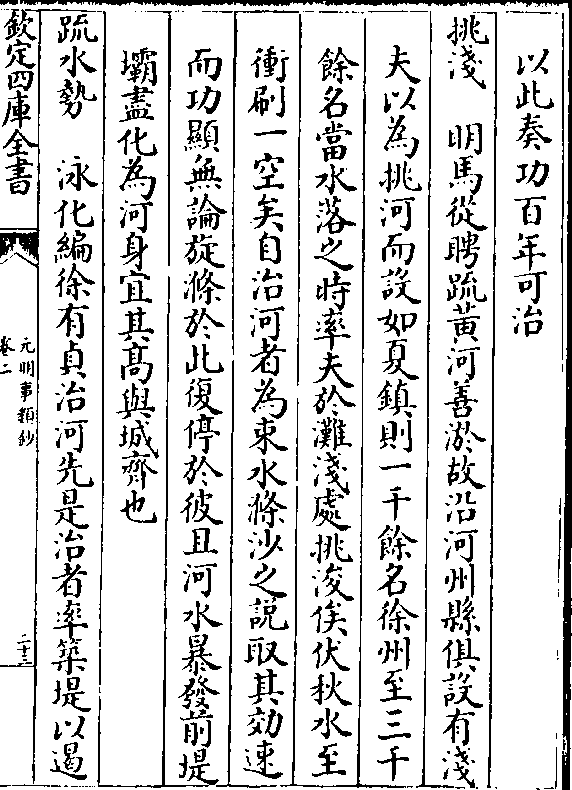 以此奏功百年可治
挑淺　明馬從聘疏黃河善淤故沿河州縣俱設有淺
夫以為挑河而設如夏鎮則一千餘名徐州至三千
餘名當水落之時率夫於灘淺處挑浚俟伏秋水至
衝刷一空矣自治河者為束水滌沙之說取其効速
而功顯無論旋滌於此復停於彼且河水暴發前堤
壩盡化為河身宜其髙與城齊也
疏水勢　泳化編徐有貞治河先是治者率築堤以遏
欽定四庫全書
元明事類鈔
卷二
二十三